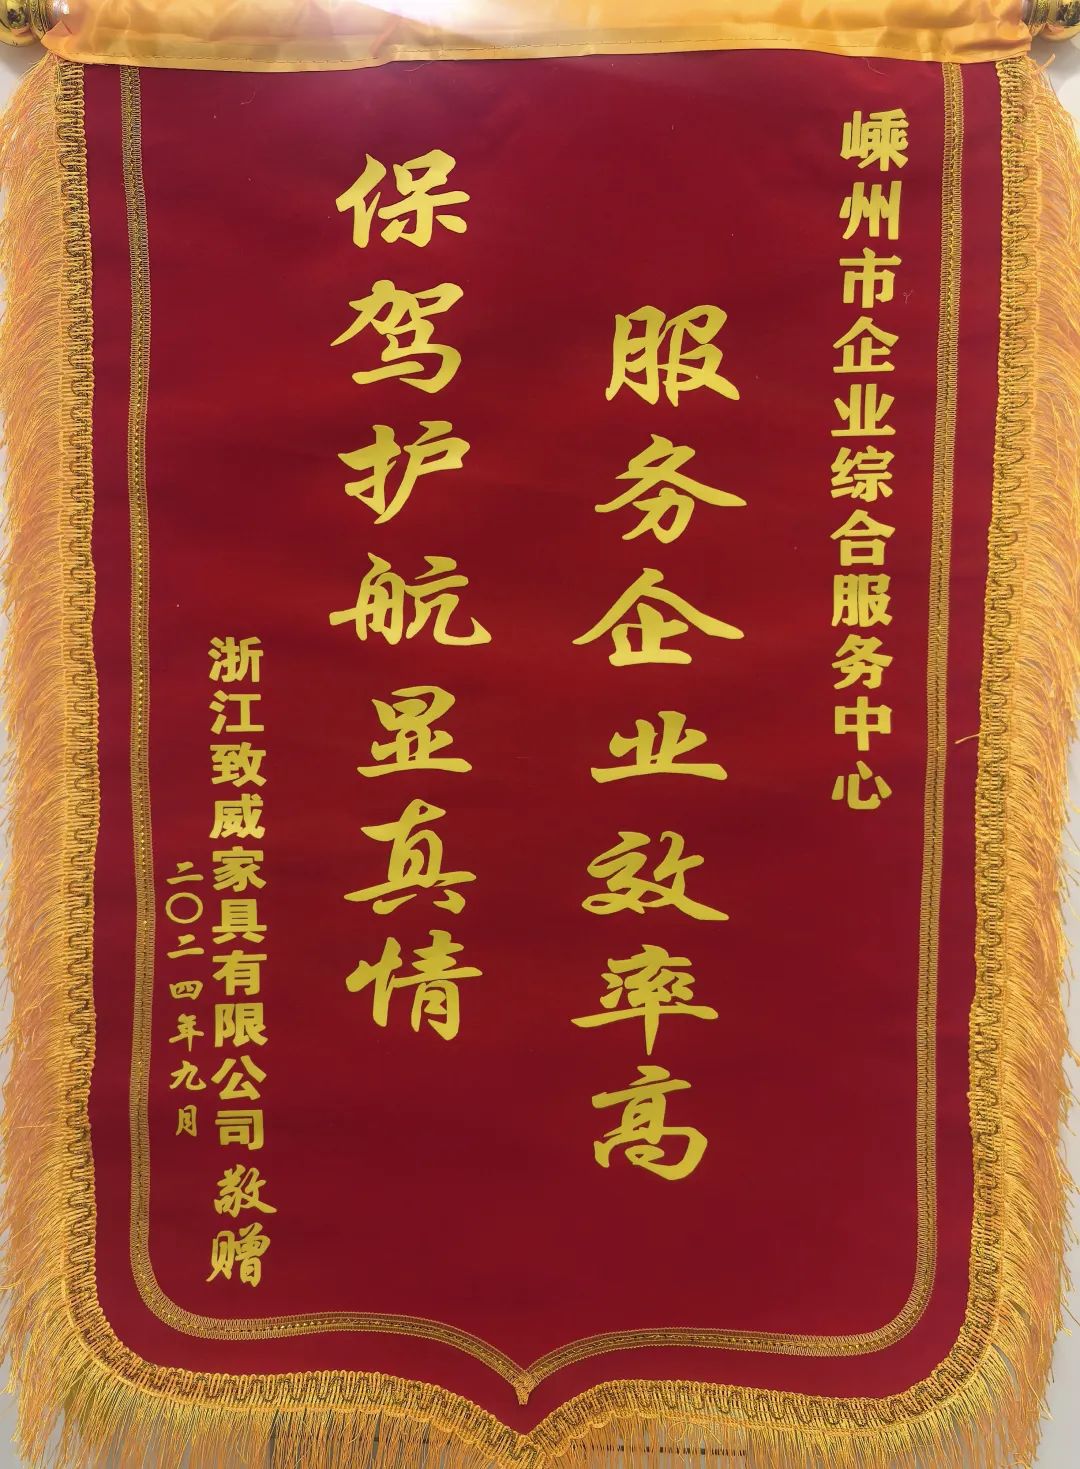 嵊州市企业综合服务中心
服务企业效率高
保驾护航显真情
浙江致威家具有限公司敬赠
二〇二四年九月